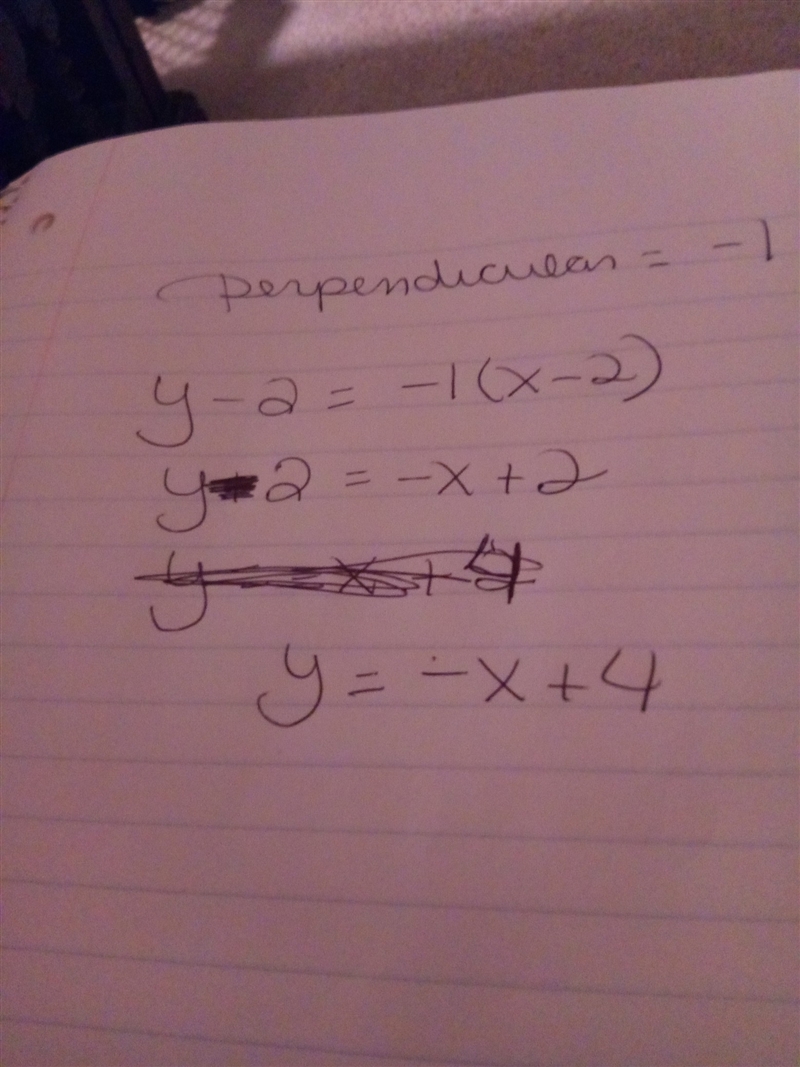 perpendicular = -1
y - 2 = -1(x - 2)
y - 2 = -x + 2
y x + 4
y = -x + 4